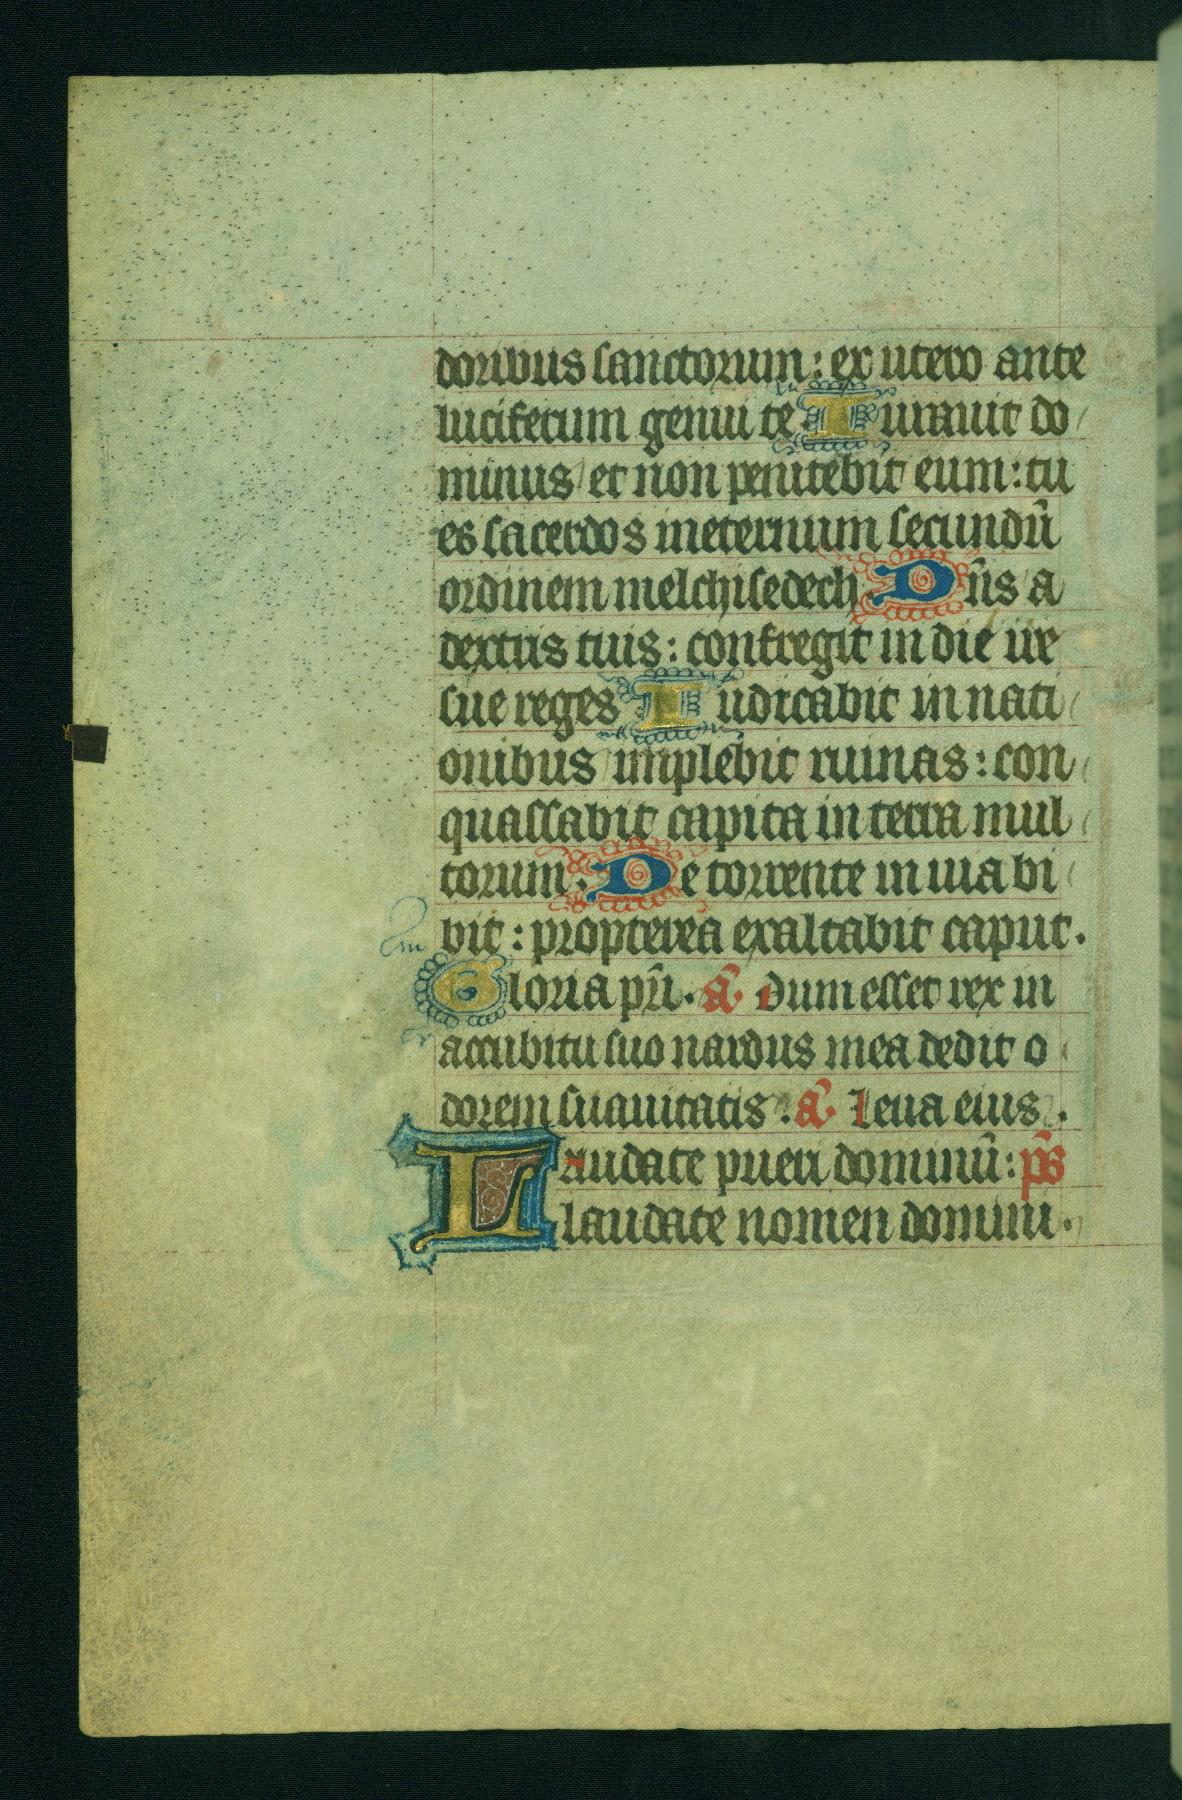 doribus sanctorum: ex utero ante
luciferum genui te Iurauit do
minus et non penitebit eum: tu
es sacerdos ineternum secundũ
ordinem melchisedech. Dñs a
dextris tuis: confregit in die ire
sue reges Iudicabit in nati
onibus implebit ruinas: con
quassabit capita in terra mul
torum. De torrente in uia bi
bit: propterea exaltabit caput.
Gloria pr̃i. añ. Dum esset rex in
accubitu suo nardus mea dedit o
dorem suauitatis. añ. Leua eius.
Laudate pueri dominũ: p̃s
laudate nomen domini.